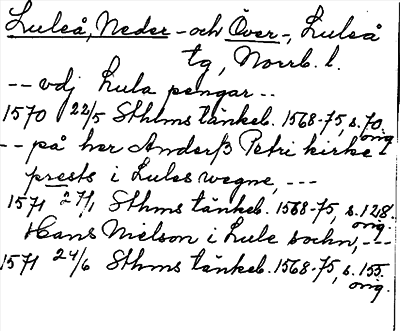 Luleå, Neder- och Över-, Luleå
tg, Norrb. l.
-- vdj Lula pengar --
1570 22/5 Sthlms tänkeb. 1568-75, s. 70.
orig.
-- på her Anderß Petri kirke
prests i Lules wegne, ---
1571 27/1 Sthms tänkeb. 1568-75, s. 128.
orig.
Hans Nielson i Lule sochn, ---
1571 24/6 Sthms tänkeb. 1568-75, s. 155.
orig.